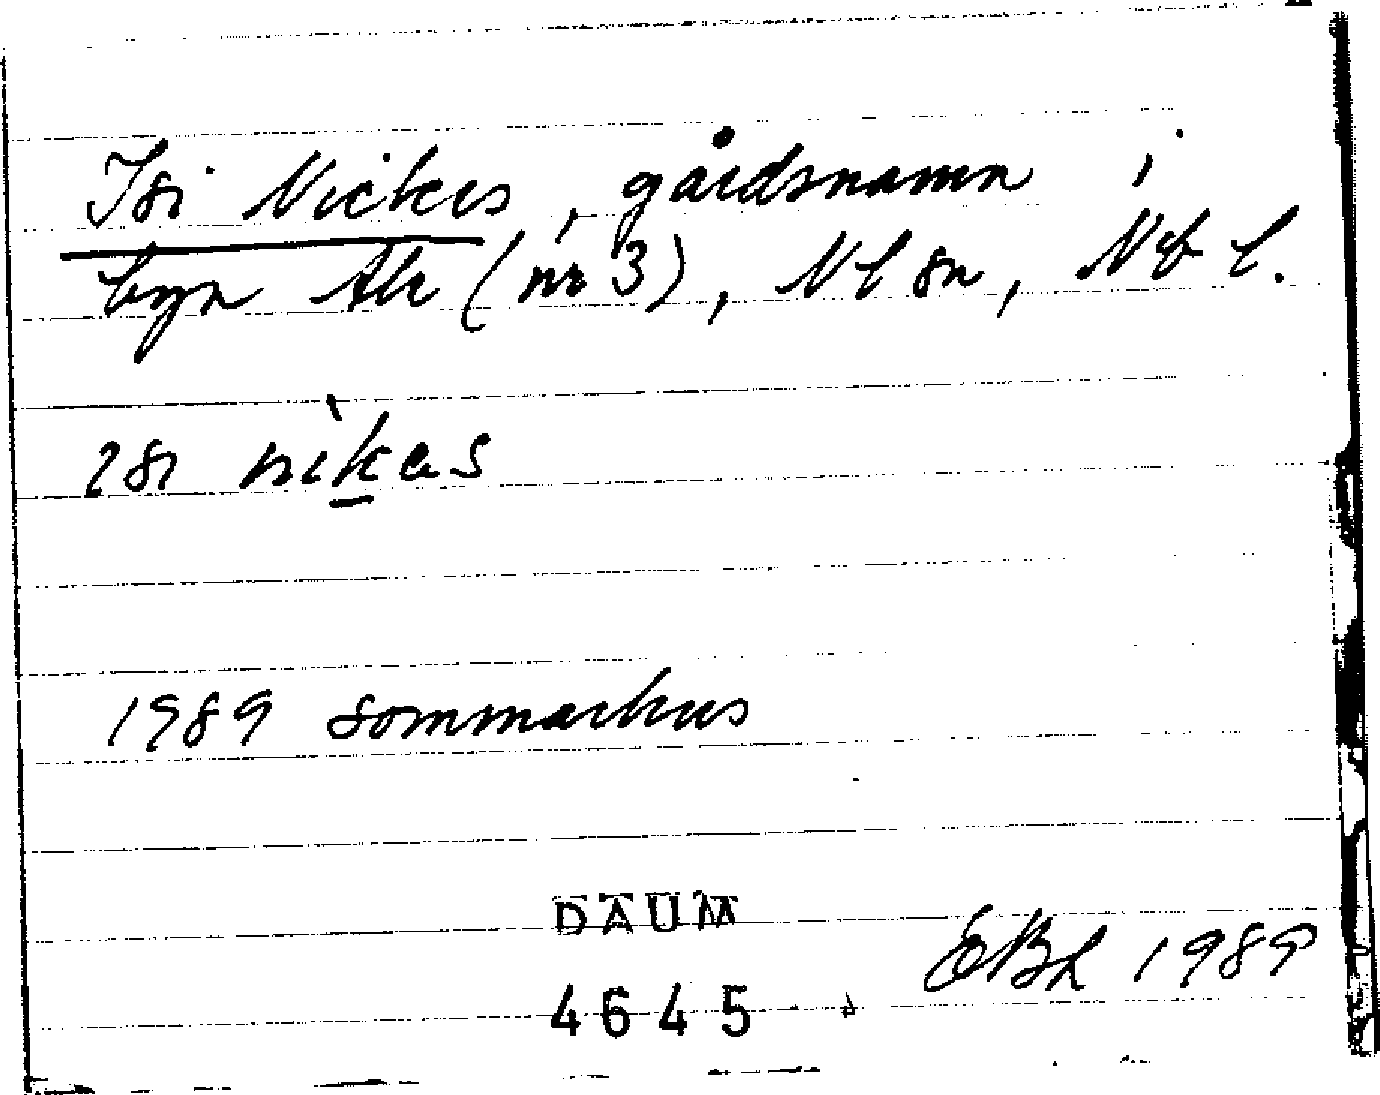 Isi Nickes, gårdsnamn i
byn Ak (nr 3), Nl sn, Vb l.
isi nìkas
1989 sommarhus
DAUM
4645
EBL 1989